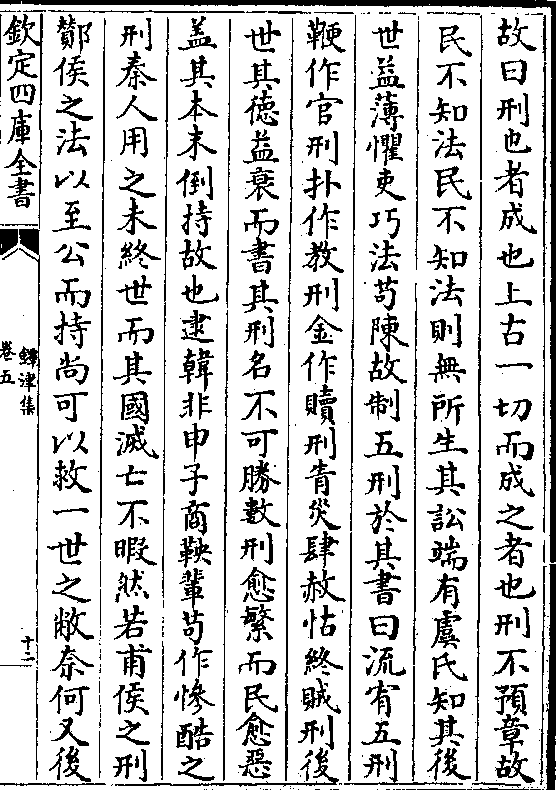 故曰刑也者成也上古一切而成之者也刑不預章故
民不知法民不知法則無所生其訟端有虞氏知其後
世益薄懼吏巧法苟陳故制五刑於其書曰流宥五刑
鞭作官刑扑作教刑金作贖刑眚災肆赦怙終賊刑後
世其德益衰而書其刑名不可勝數刑愈繁而民愈惡
盖其本末倒持故也逮韓非申子商鞅輩苟作慘酷之
刑秦人用之未終世而其國滅亡不暇然若甫侯之刑
酇侯之法以至公而持尚可以救一世之敝奈何又後
欽定四庫全書
鐔津集
卷五
十二